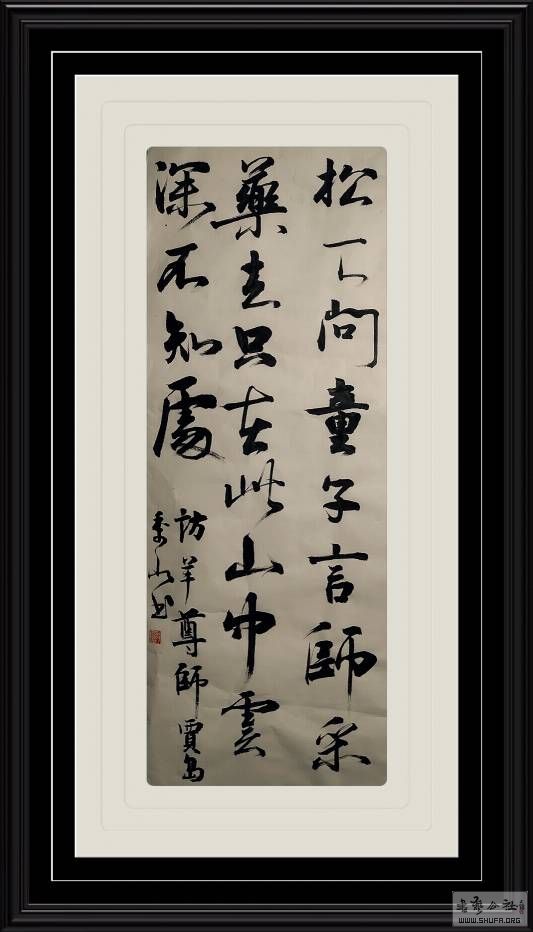 松下問童子言師采
藥去只在此山中雲
深不知處
訪羊尊師 賈島
书
書藝公社
WWW.SHUFA.ORG